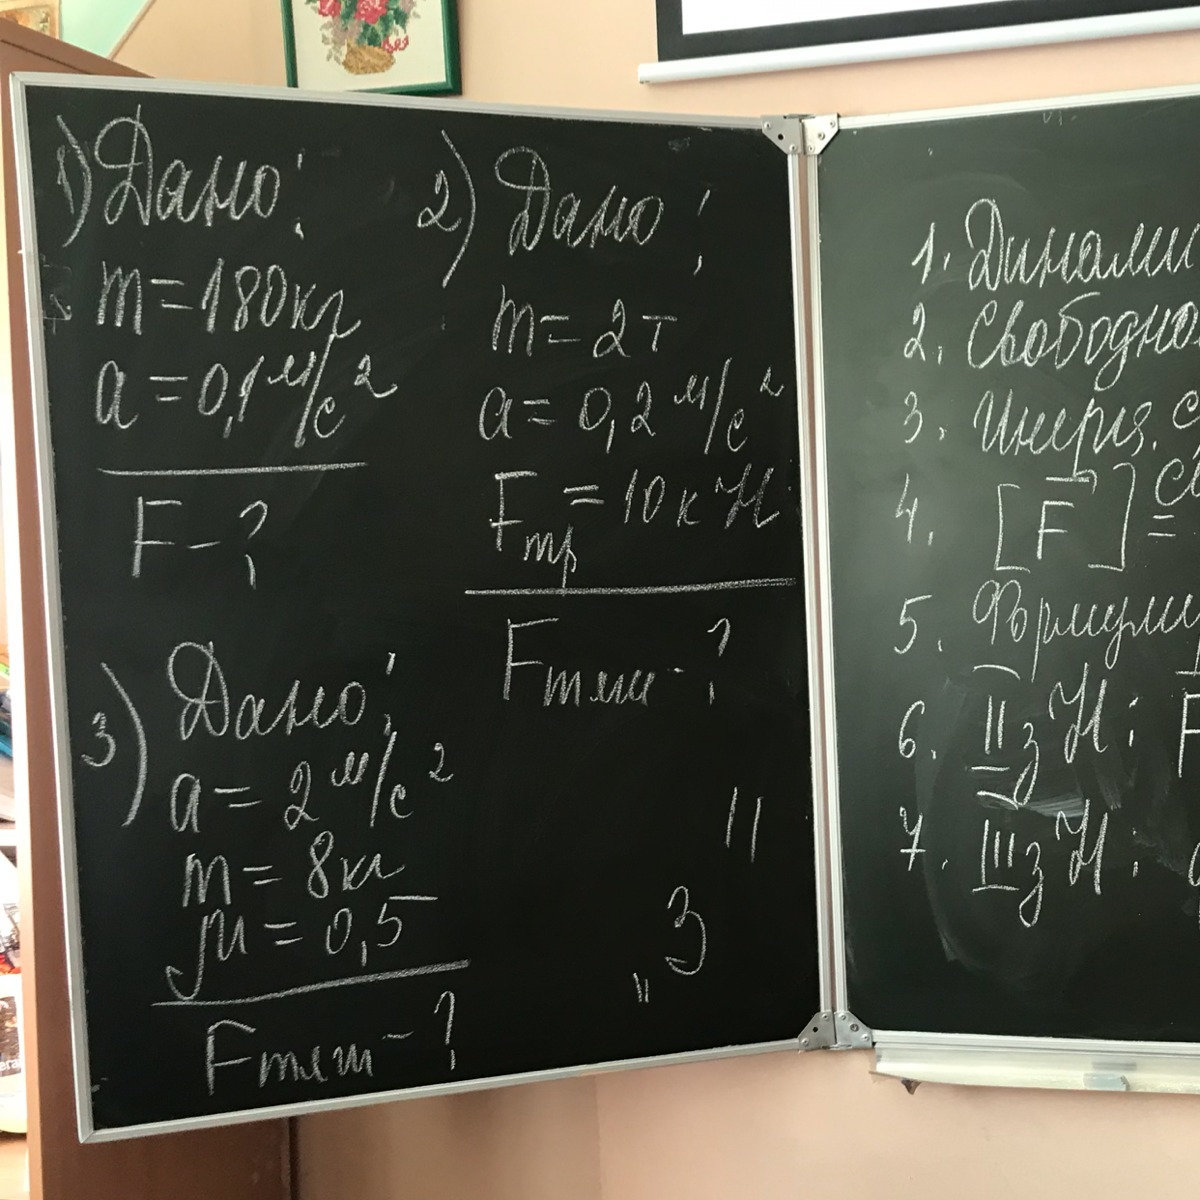 1) Дано:
m = 180кг
a = 0,1 м/с²
F - ?
2) Дано:
m = 2 т
a = 0,2 м/с²
Fтр = 10 кН
Fтяги - ?
3) Дано:
a = 2 м/с²
m = 8кг
μ = 0,5
Fтяги - ?
"3"
1. Динами
2. Свободно
3. Инерция. С
4. [F⃗] =
5. Формули
6. II з Н: F
7. III з Н: